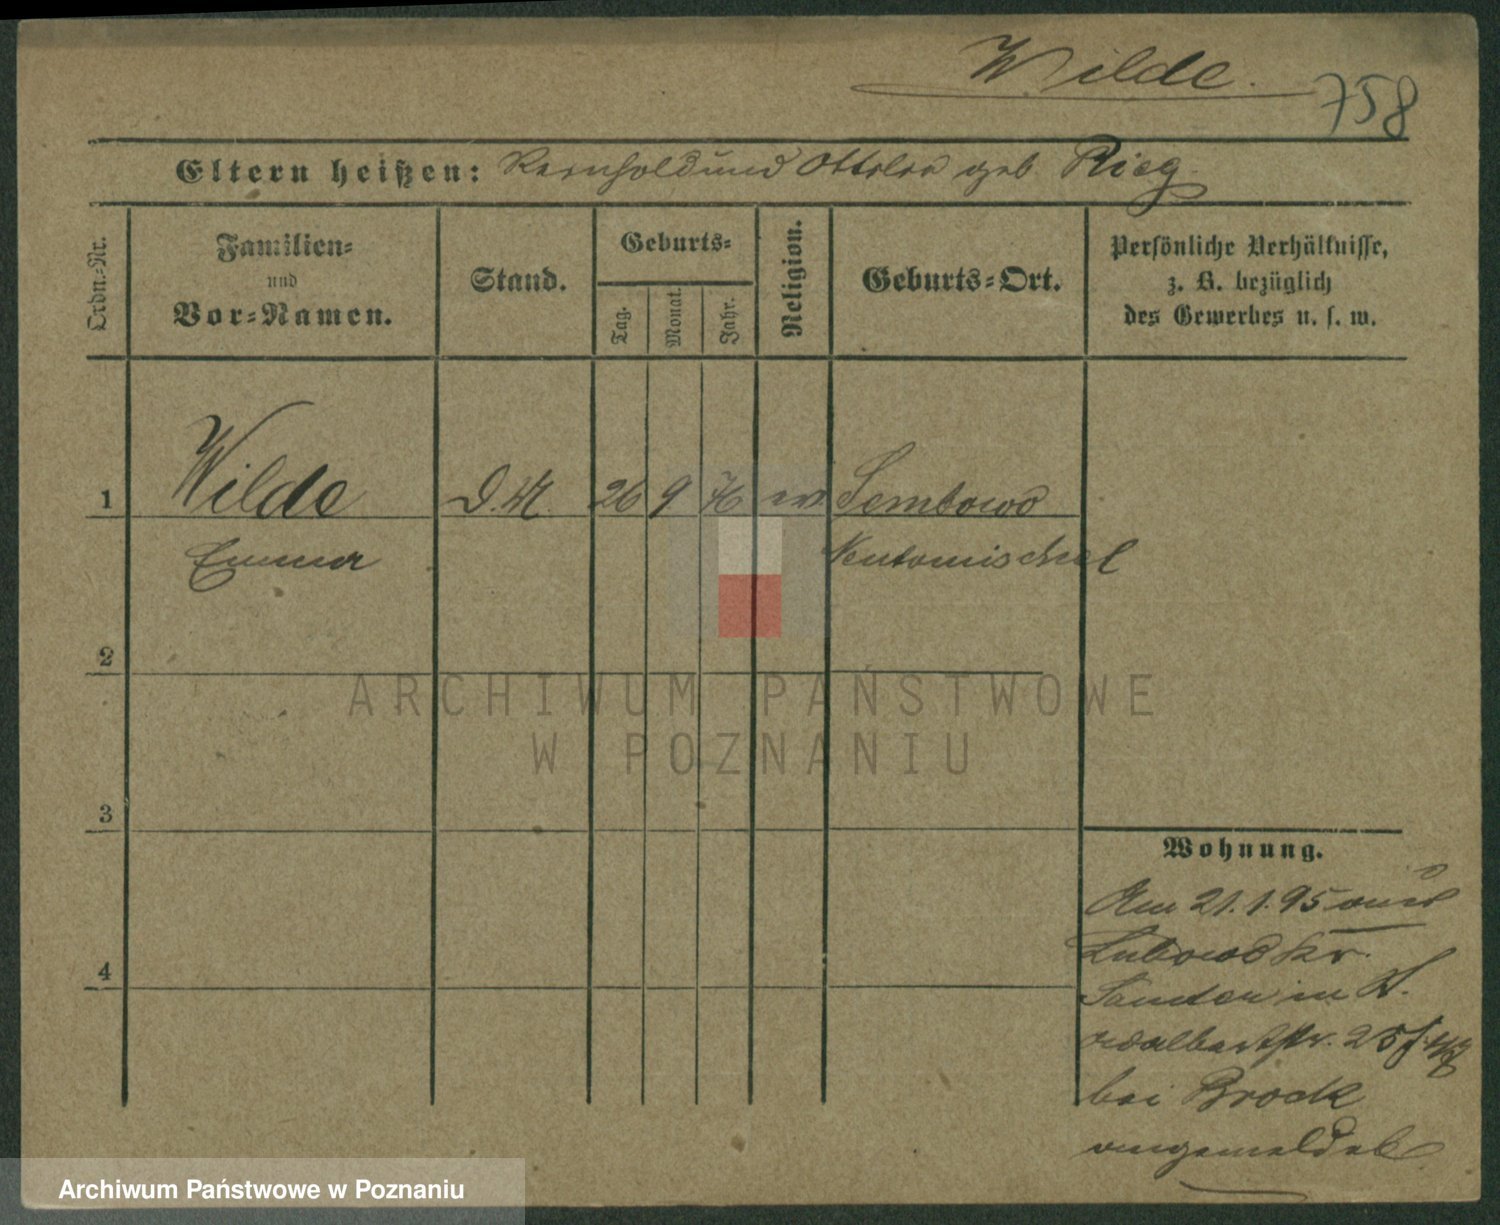 Wilde.
758
Eltern heißen: Reinhold und Ottilie geb. Rieg.
Ordn.-Nr.
Familien-
und
Vor-Namen.
Stand.
Geburts-
Tag.
Monat.
Jahr.
Religion.
Geburts-Ort.
Persönliche Verhältnisse,
z. B. bezüglich
des Gewerbes u. s. w.
1 Wilde D. M. 26 9 76 ev. Sembowo
Emma Neutomischel
2
3
4
Wohnung.
Am 21.1.95 aus
Lubowo Kr.
Samter in St.
Adalbertstr. 25
bei Brock
angemeldet
ARCHIWUM PAŃSTWOWE
W POZNANIU
Archiwum Państwowe w Poznaniu